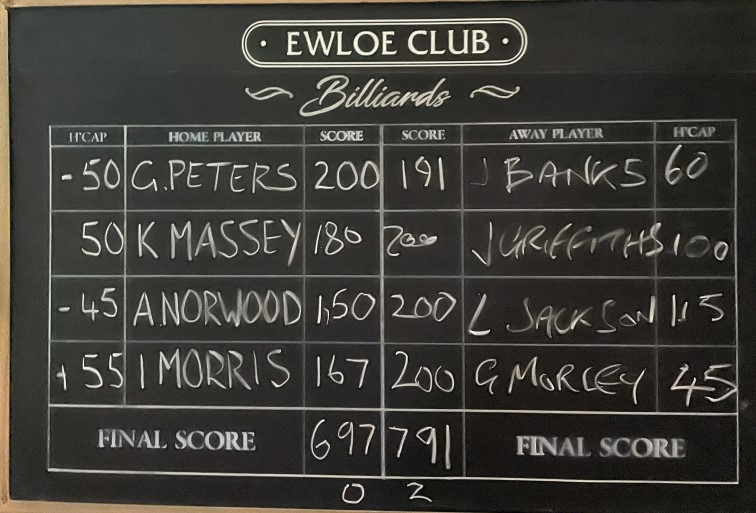 · EWLOE CLUB ·
Billiards
H'CAP HOME PLAYER SCORE SCORE AWAY PLAYER H'CAP
-50 G.PETERS 200 191 J BANKS 60
50 K MASSEY 180 200 J GRIFFITHS 100
-45 A.NORWOOD 150 200 L JACKSON 115
+55 I MORRIS 167 200 G MORLEY 45
FINAL SCORE 697 791 FINAL SCORE
0 2